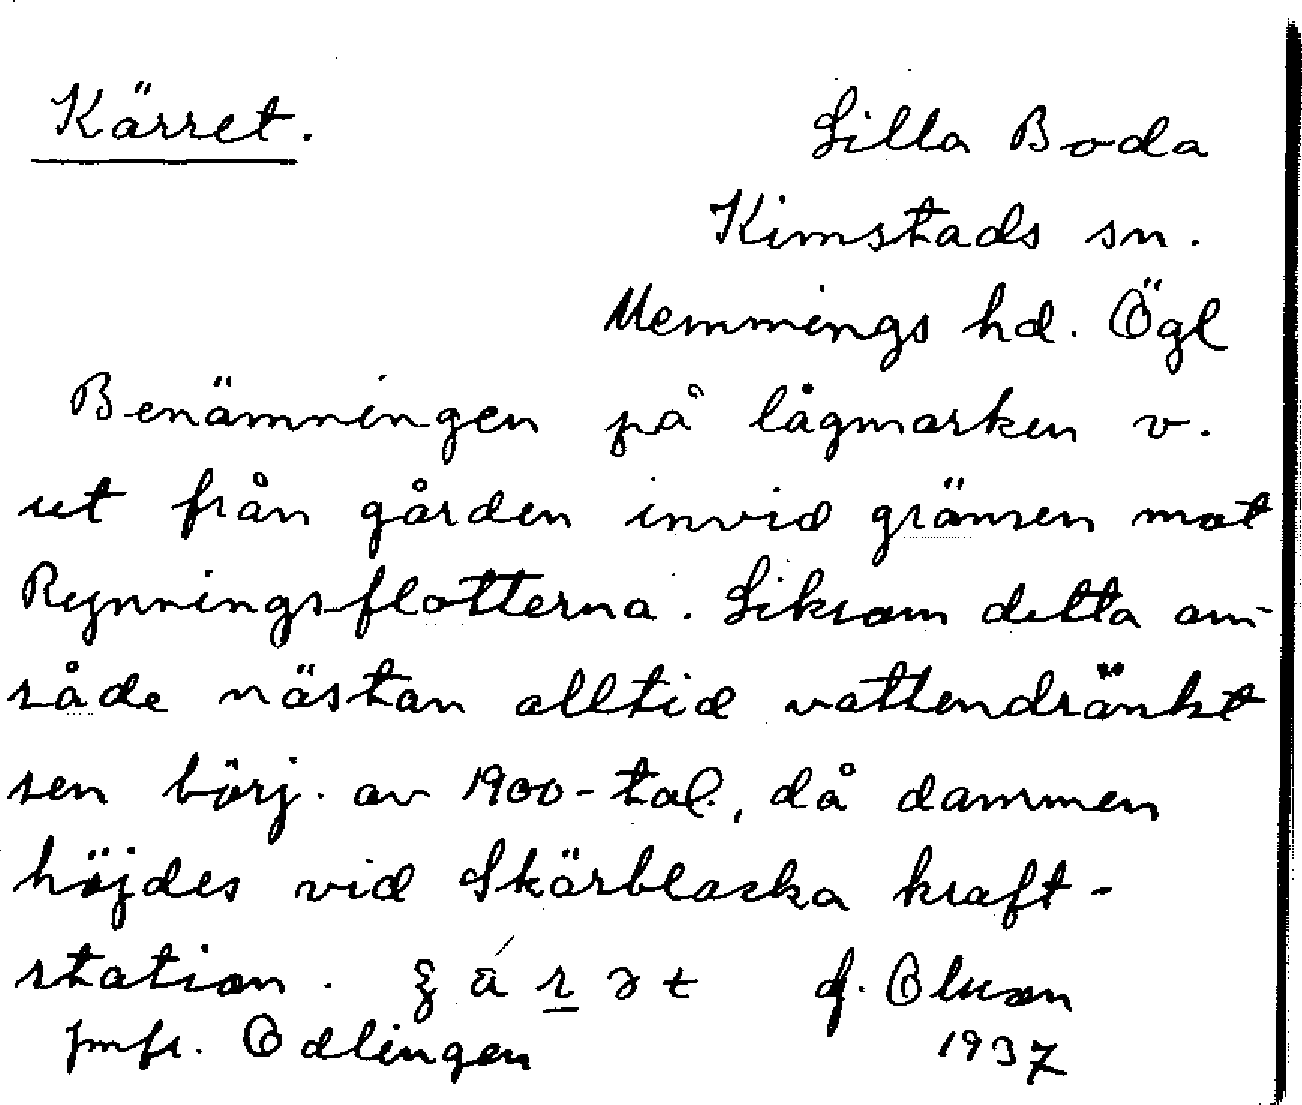 Kärret.
Lilla Boda
Kimstads sn.
Memmings hd. Ögl
Benämningen på lågmarken v.
ut från gården invid gränsen mot
Rynningsflotterna. Liksom detta om-
råde nästan alltid vattendränkt
sen börj. av 1900-tal., då dammen
höjdes vid Skärblacka kraft-
station.
Olsson
jmfr. Odlingen
1937